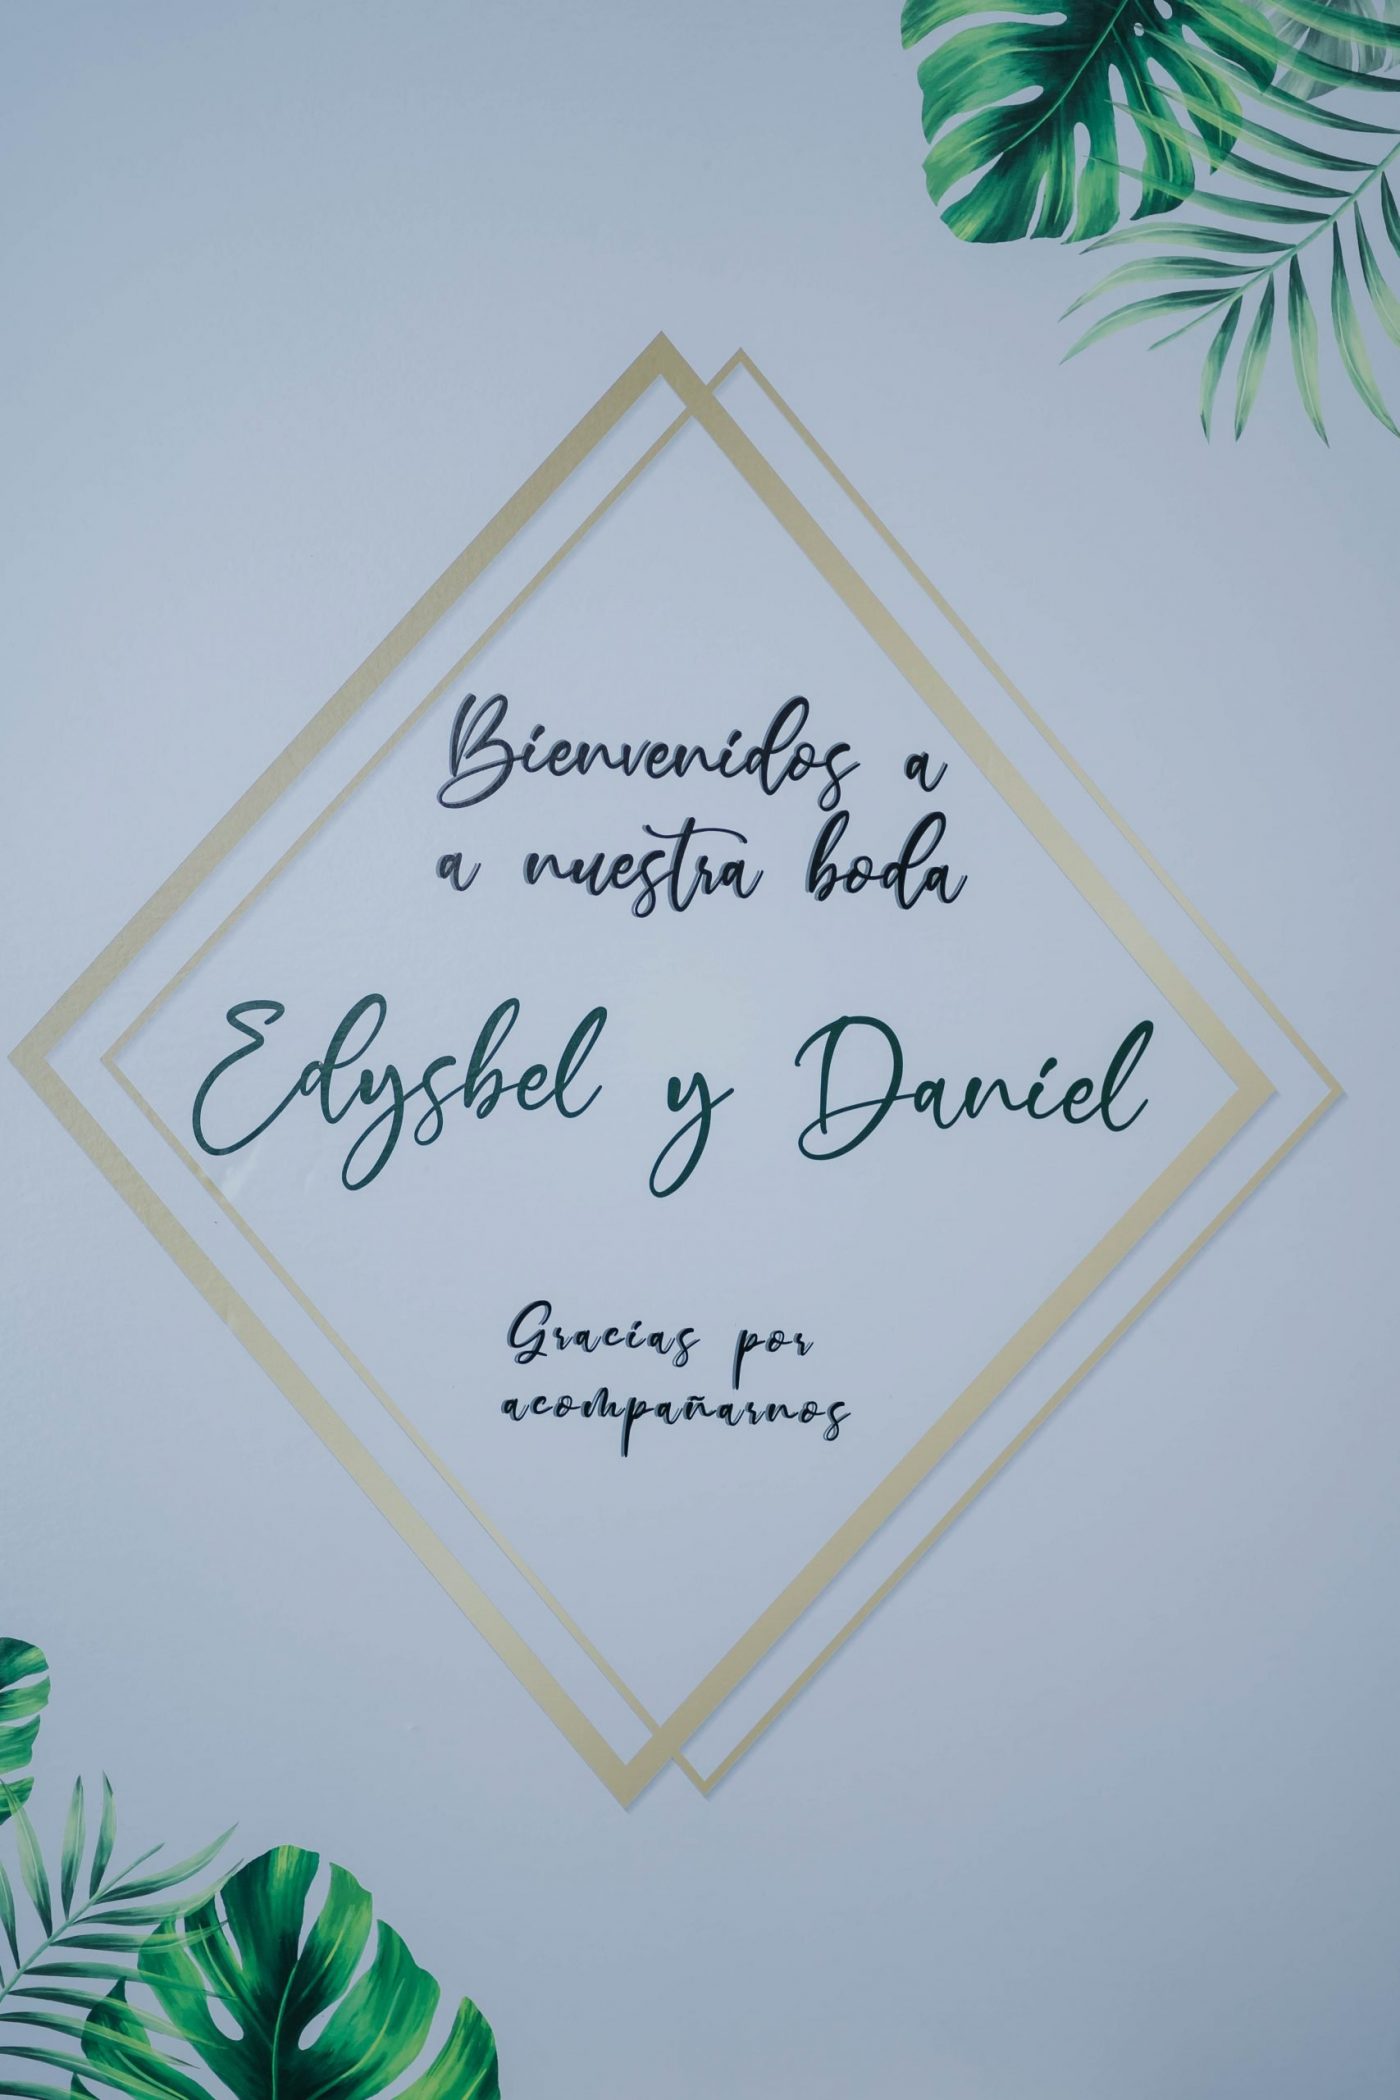 Bienvenidos a
a nuestra boda
Edysbel y Daniel
Gracias por
acompañarnos